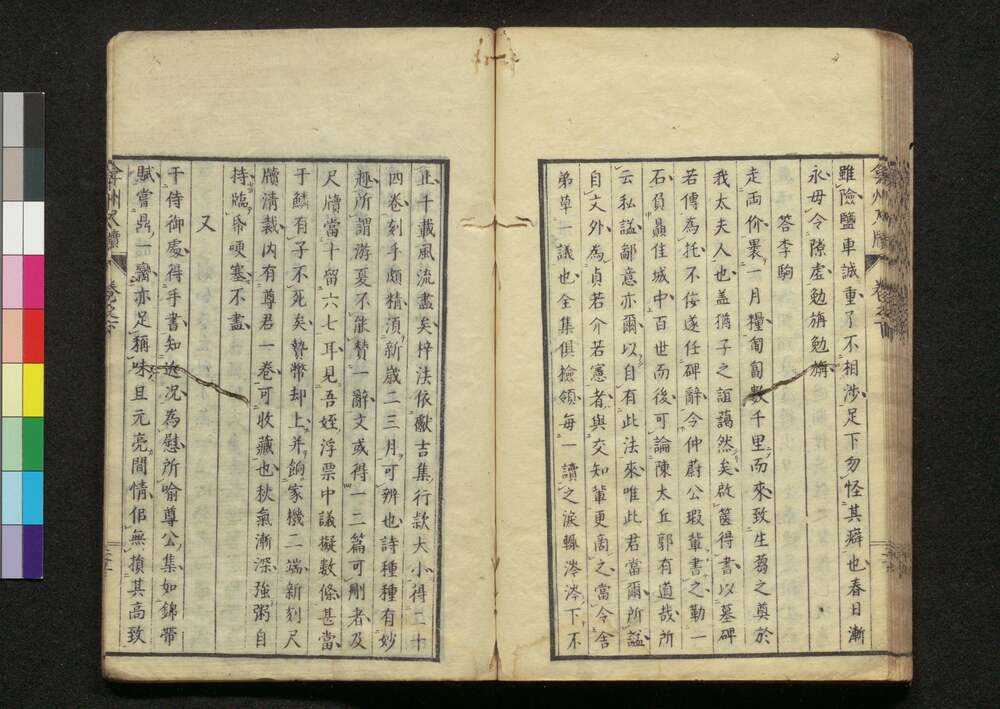 雖險鹽車誠重了不相涉足下勿怪其癖也春日漸
永毋令隙虛勉旃勉旃
答李駒
走两价褁一月糧匍匐數千里而來致生芻之奠於
我太夫人也盖猶子之誼藹然矣啟篋得書以墓碑
若傳為托不佞遂任碑辭今仲蔚公瑕軰書之勒一
石負鼎佳城中百世而後可論陳太丘郭有道哉所
云私謚鄙意亦爾以自有此法來唯此君當爾所謚
自文外為貞若介若憲者與交知軰更啇之當令舍
弟草一議也全集俱撿領每一讀之淚輙涔涔下不
止千載風流盡矣梓法依獻吉集行款大小得二十
四卷刻手頗精湏新歲二三月可辨也詩種種有妙
趣所謂游夏不能賛一辭文或得一二篇可刪者及
尺牘當十留六七耳見吾姪浮票中議擬數條甚當
于鱗有子不死矣贄幣却上并餉家機二端新刻尺
牘清裁内有尊君一巻可收藏也秋氣漸深強粥自
持臨帋哽塞不盡
又
干侍御處得手書知近况為慰所喻尊公集如錦帶
賦嘗鼎一臠亦足稱味且元亮間情佀無損其高致
弇州尺牘
弇州尺牘